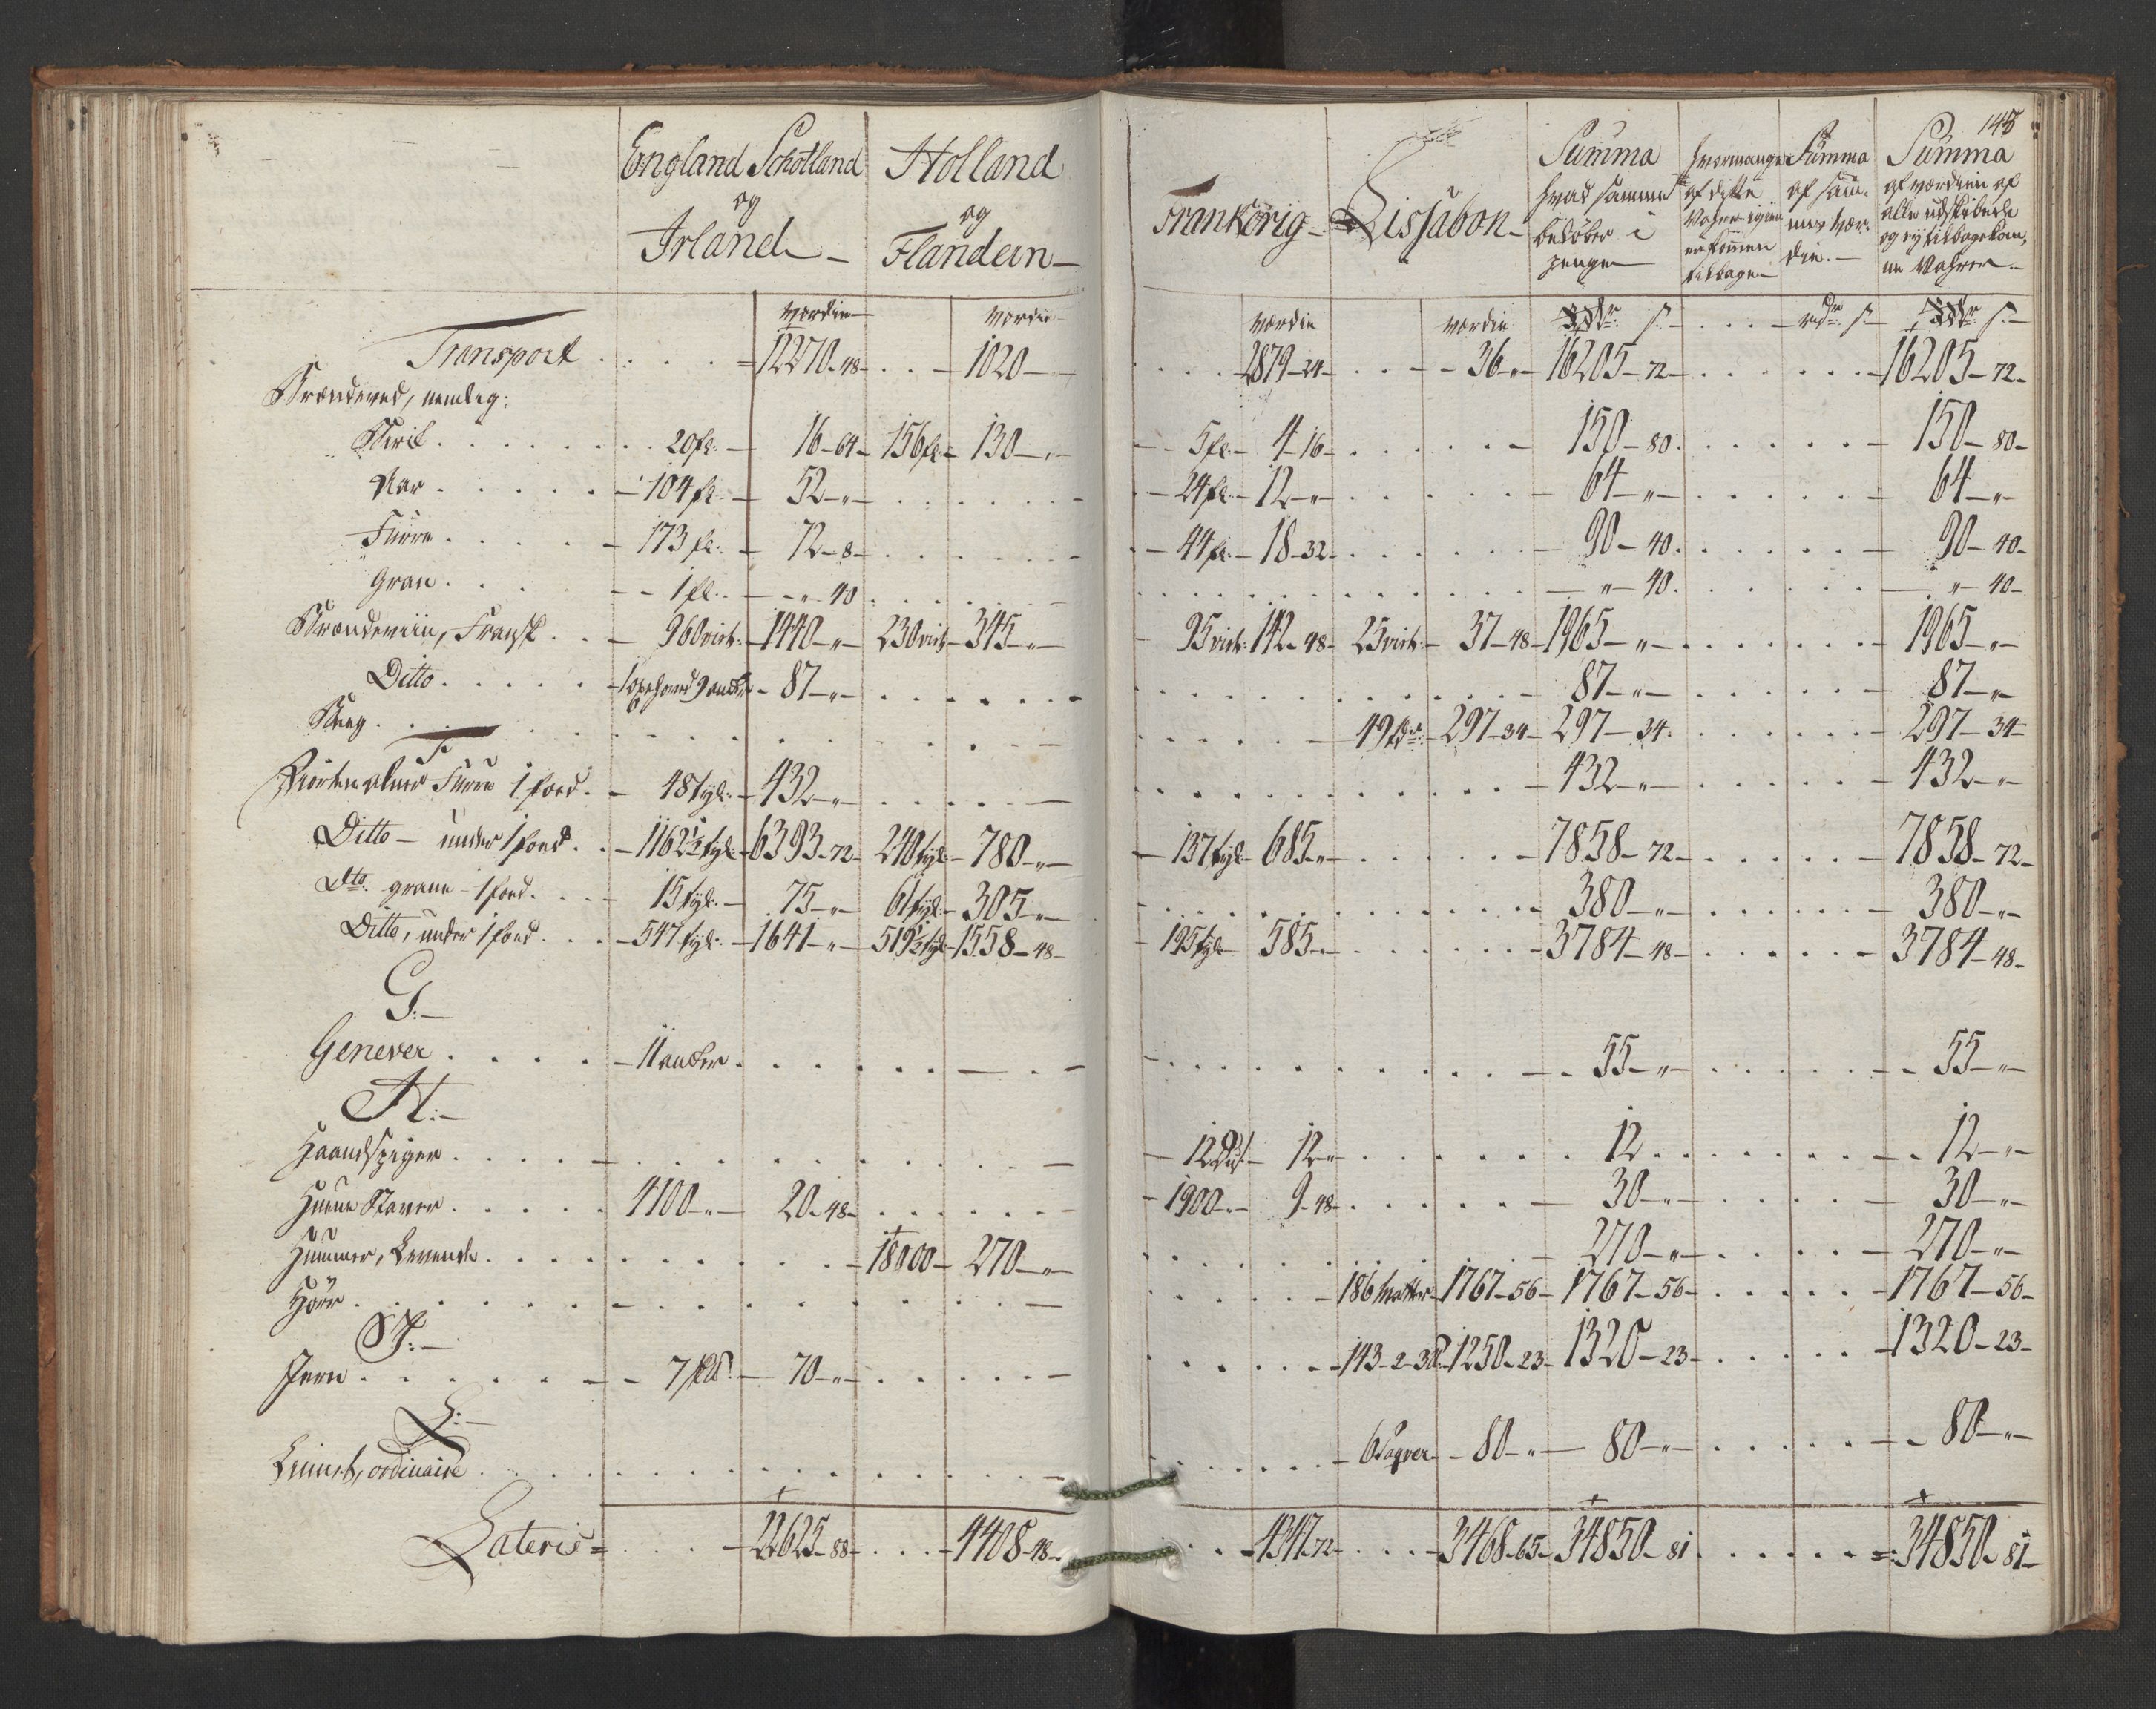 148
England Schotland
og
Irland
Holland
og
Flandern
Frankerig
Lissabon
Summa
hvad samme
beløber i
penge
hvormange
af disse
Vahrer igien
ere kommen
tilbage
Summa
af sam-
mes vær-
die.
Summa
af værdien af
alle udskibede
og ey tilbagekom,
ne Vahrer.
værdie værdie værdie værdie rdr: s. rdr: s. rdr: s.
Transport 12270-48- 1020 2879-24- 36-„- 16205-72- 16205-72-
Brændeved, nemlig:
Birk 20 fl: 16-64- 156 fl: 130-„- 5 fl: 4-16- 150-80. 150-80-
Aar 104 fl: 52-„- 24 fl: 12-„- 64-„- 64-„-
Furre 173 fl: 72-8- 44 fl: 18-32- 90-40. 90-40-
Gran 1 fl: „-40 „-40. „-40-
Brændeviin, Fransk 960 virt: 1440-„- 230 virt 345-„- 95 virt: 142-48- 25 virt: 37-48- 1965-„- 1965-„-
Ditto 1 oxehoved 9 anker 87-„- 87-„- 87-„-
Beeg 49 297-34- 297-34. 297-34-
F
Fiorten alner Furre 1 foed. 48 tyl: 432-„- 432-„- 432-„-
Ditto - under 1 foed. 1162½ tyl: 6393-72- 240 tyl: 780-„- 137 tyl: 685-„- 7858-72- 7858-72-
Dto: grane - 1 foed. 15 tyl: 75-„- 61 tyl: 305-„- 380-„- 380-„-
Ditto, under 1 foed. 547 tyl: 1641-„- 519½ tyl: 1558-48- 195 tyl: 585-„- 3784-48- 3784-48-
G:-
Genever 11 anker 55-„- 55-„-
H:-
Haandspiger 12 12-„- 12 12-„-
Huun Staver 4100-„- 20-48- 1900-„- 9-48- 30-„- 30-„-
Hummer, Levende 18000- 270-„- 270-„- 270-„-
Hörr 186 Matter 1767-56- 1767-56- 1767-56-
J:-
Jern 7 70-„- 143-2- 1250-23- 1320-23- 1320-23-
L:-
Lerret, ordinaire 6 80-„- 80-„- 80-„-
Lateris = 22625-88- 4408-48- 4347-72- 3468-65- 34850-81 34850-81-